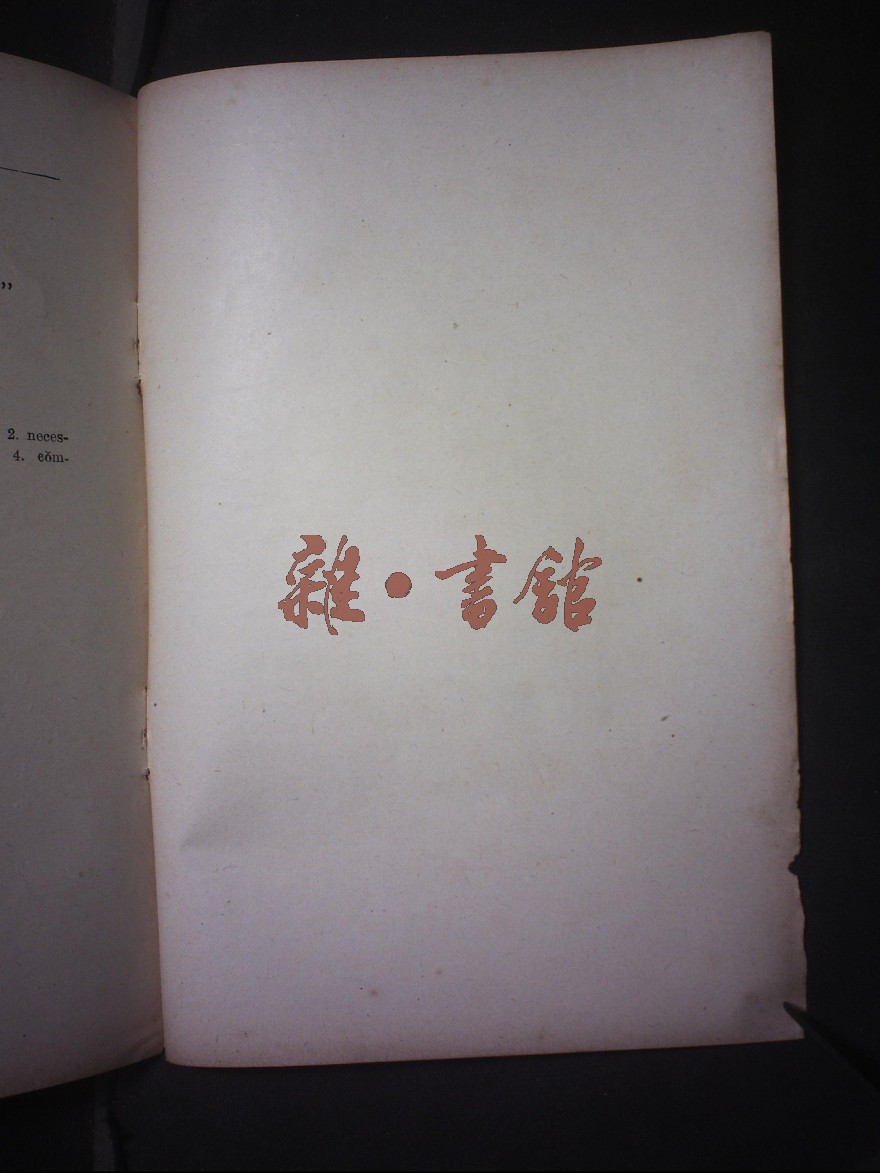 ”
2. neces-
4. cŏm-
雜·書館